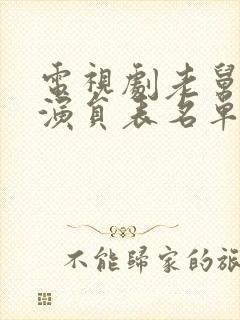 電視劇老舅
演員表名單
不能歸家的旅